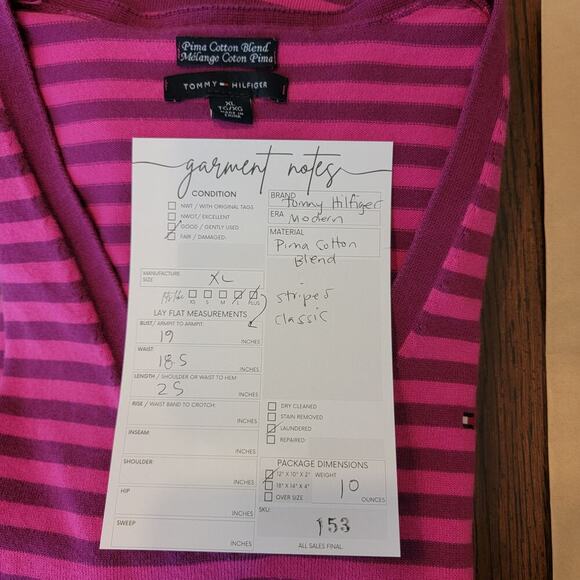 Pima Cotton Blend
Mélange Coton Pima
TOMMY HILFIGER
XL
TG/XG
MADE IN
CHINA
garment notes
CONDITION
NWT / WITH ORIGINAL TAGS
NWOT/ EXCELLENT
GOOD / GENTLY USED
FAIR / DAMAGED:
BRAND Tommy Hilfiger
ERA Modern
MATERIAL
Pima Cotton
Blend
striped
classic
MANUFACTURE
SIZE XL
XS S M L PLUS
LAY FLAT MEASUREMENTS
BUST/ ARMPIT TO ARMPIT:
19 INCHES
WAIST:
18.5 INCHES
LENGTH / SHOULDER OR WAIST TO HEM
25 INCHES
RISE / WAIST BAND TO CROTCH:
INCHES
INSEAM:
INCHES
SHOULDER:
INCHES
HIP
INCHES
SWEEP
INCHES
DRY CLEANED
STAIN REMOVED
LAUNDERED
REPAIRED:
PACKAGE DIMENSIONS
12" X 10" X 2"
18" X 14" X 4"
OVER SIZE
WEIGHT
10 OUNCES
SKU:
153
ALL SALES FINAL